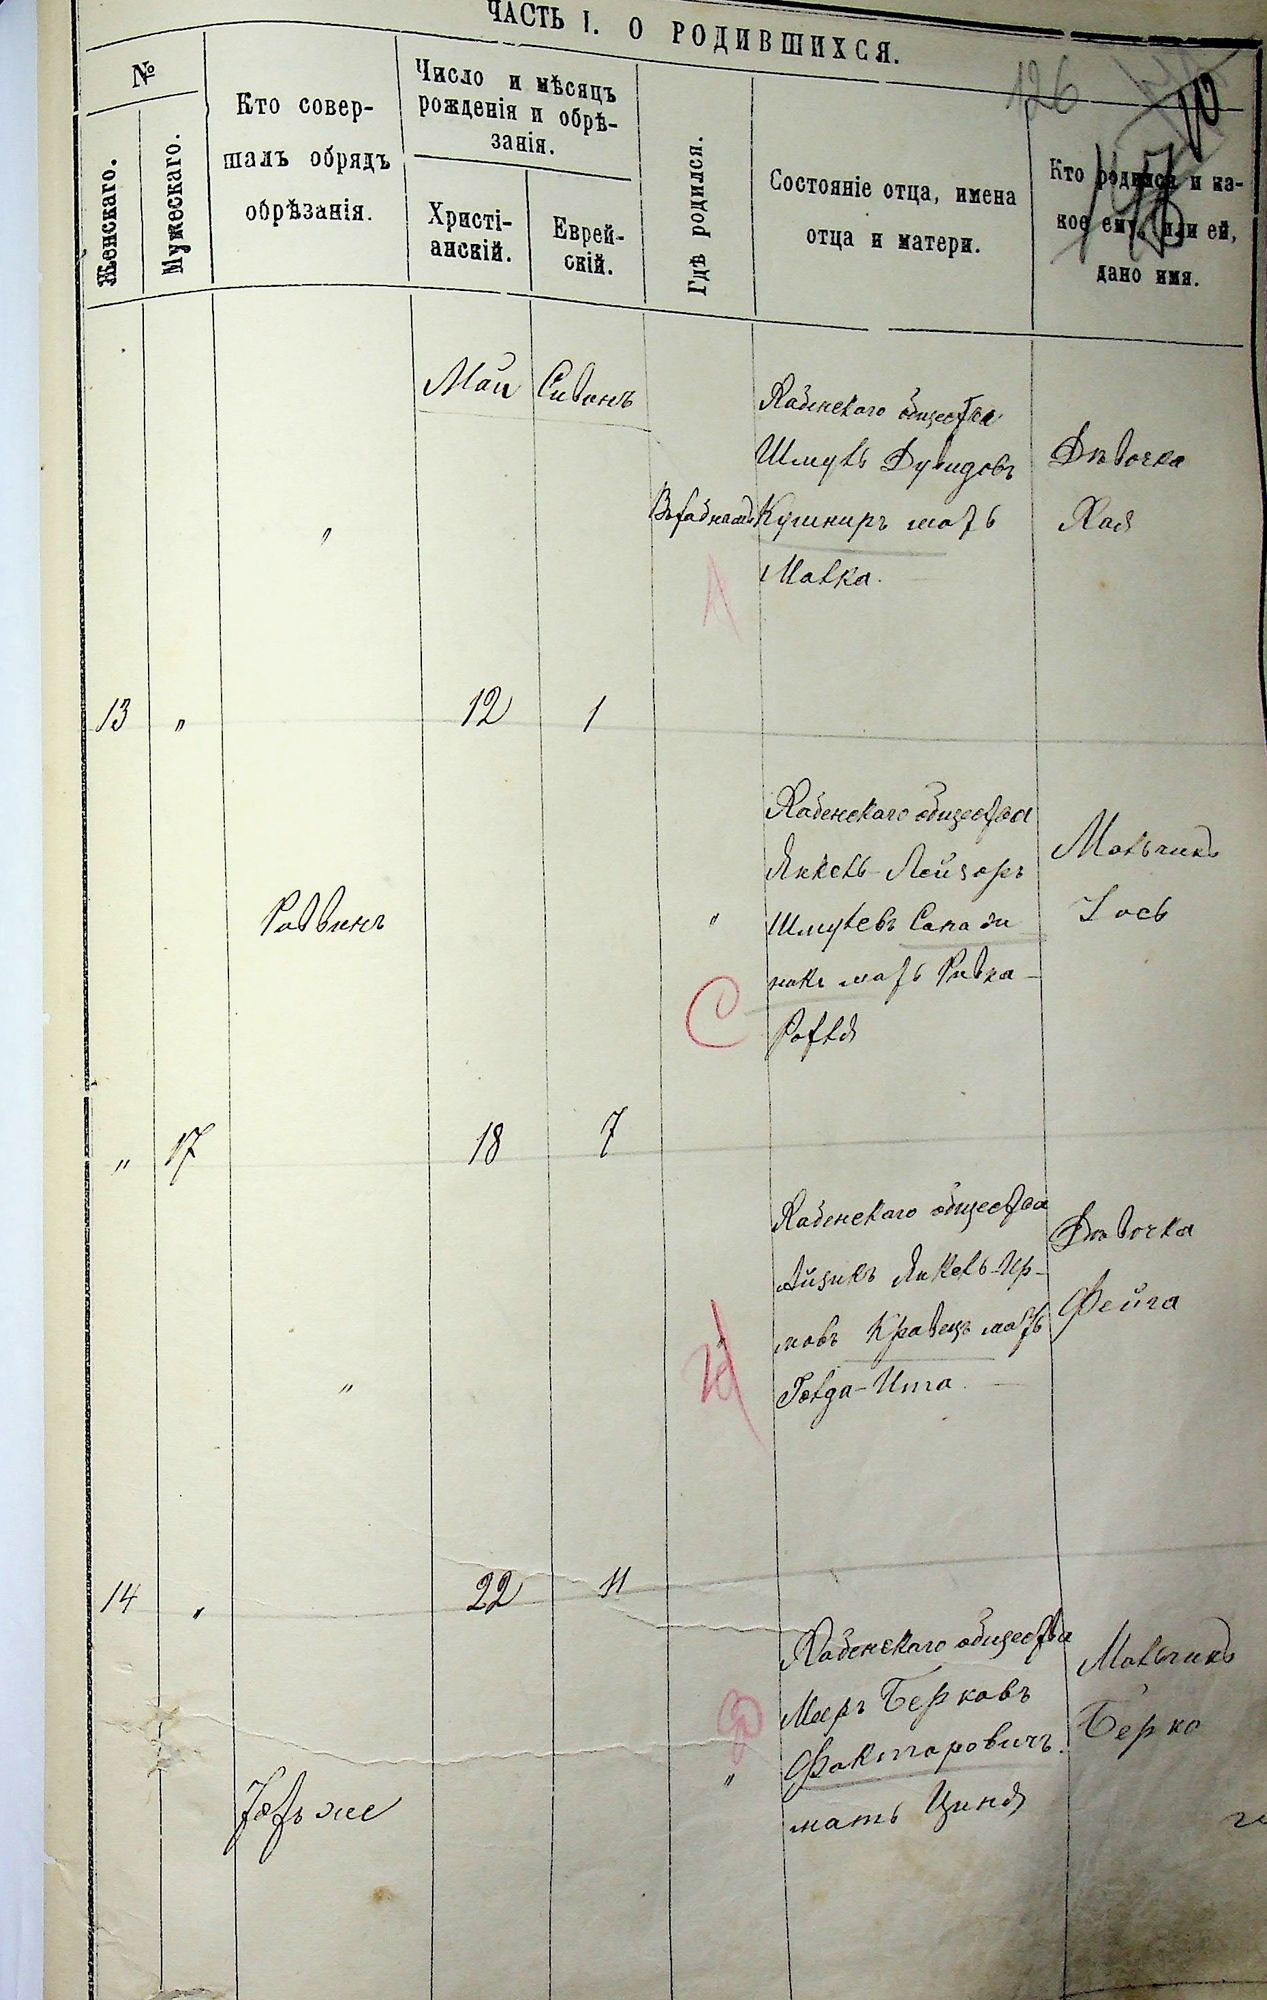 ЧАСТЬ I. О РОДИВШИХСЯ.
126
10
№
Женскаго.
Мужескаго.
Кто совер-
шалъ обрядъ
обрѣзанія.
Число и мѣсяцъ
рожденія и обрѣ-
занія.
Христі-
анскій.
Еврей-
скій.
Гдѣ родился.
Состояніе отца, имена
отца и матери.
Кто родился и ка-
кое ему, или ей,
дано имя.
Май
Сиванъ
Хабенскаго общества
Шмуль Дувидовъ
Кушниръ мать
Малка.
Дѣвочка
Хая
"
13
"
12
1
Раввинъ
"
Хабенскаго общества
Янкель-Лейзоръ
Шмулевъ
мать Ривка-
Мальчикъ
Іось
С
"
17
18
7
"
"
Хабенскаго общества
Айзикъ Янкель-
мовъ Кравецъ мать
Голда-Ита
Дѣвочка
Фейга
14
"
22
11
Тотъ же
"
Хабенскаго общества
Мееръ Берковъ
Факторовичъ.
мать Циня
Мальчикъ
Берко